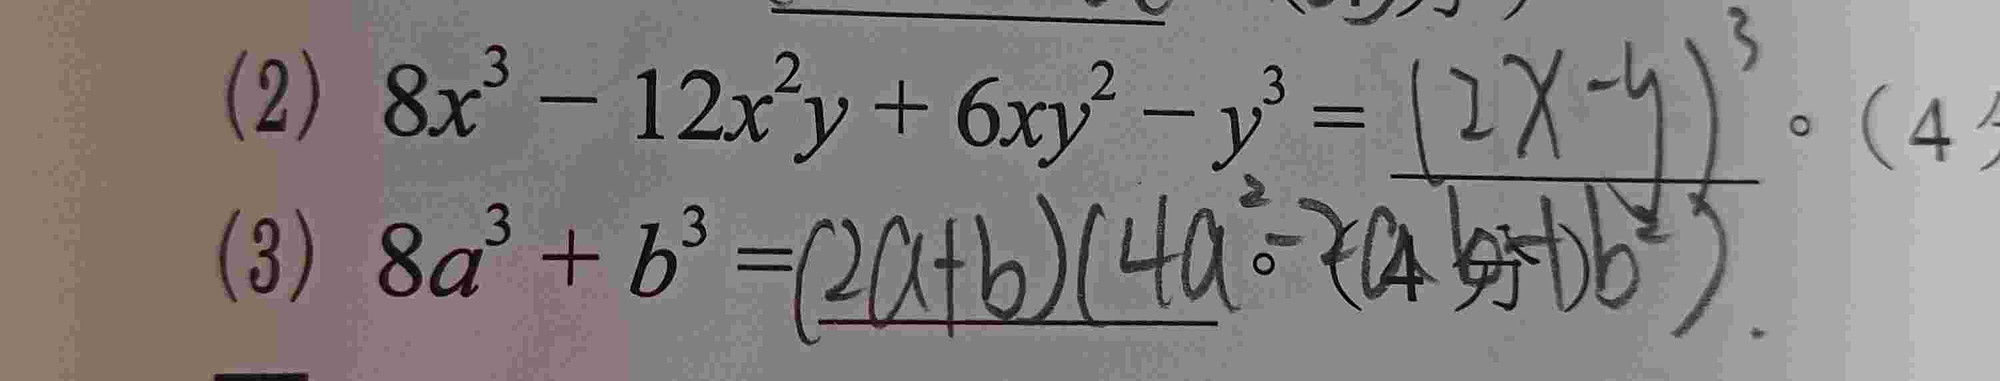 (2) 8x³ − 12x²y + 6xy² − y³ = (2x-y)³。(4分
(3) 8a³ + b³ = (2a+b)(4a²-2ab+b²)。(4分)